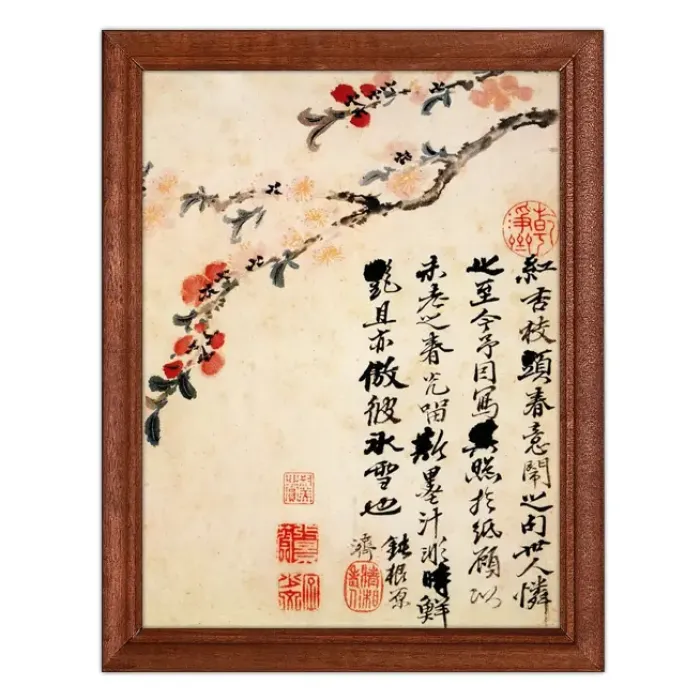 紅杏枝頭春意鬧之句世人憐
之至今予因寫其照於紙顧以
未老之春光留墨汁時鮮
艷且亦傲彼冰雪也
鈍根原
濟